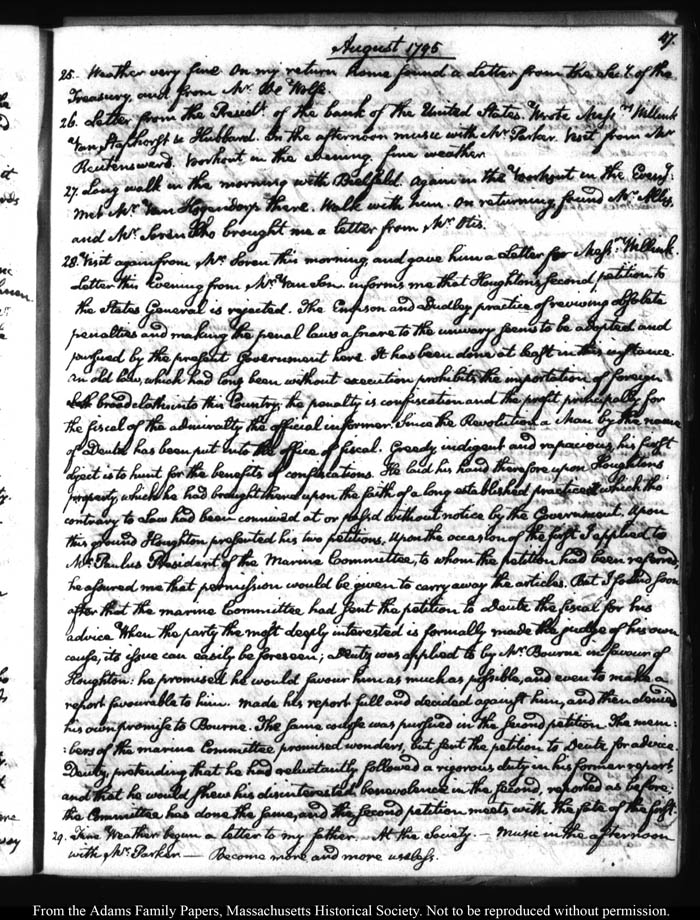 47.
August 1795
25. Weather very fine. On my return home found a Letter from the Secy. of the
Treasury, and from Mr. De Wolfe.
26. Letter from the Presidt. of the bank of the United States. Wrote Messrs Willink
Van Staphorst & Hubbard. In the afternoon music with Mr Parker. Visit from Mr
Reutensward. Voorhout in the evening. fine weather
27. Long walk in the morning with Bielfeld. Again in the Voorhout in the Eveng:
met Mr. Van Hogendorp there. Walk with him. On returning found Mr. Alley,
and Mr. Soren who brought me a letter from Mr. Otis.
28. Visit again from Mr. Soren this morning, and gave him a Letter for Messrs. Willink.
Letter this Evening from Mr. Van Son informs me that Houghton's second, petition to
the States General is rejected. The Empson and Dudley practice of reviving obsolete
penalties and making the penal laws a snare to the unwary seems to be adopted and
pursued by the present Government here. It has been done at least in this instance.
An old law, which had long been without execution prohibits the importation of foreign
broad cloth into this Country; the penalty is confiscation and the profit principally for
the fiscal of the admiralty the official informer. Since the Revolution a Man by the name
of Deutz has been put into the office of fiscal. Greedy indigent and rapacious, his first
object is to hunt for the benefits of confiscations. He laid his hand therefore upon Houghtons
property, which he had brought here upon the faith of a long established practice which tho
contrary to Law had been connived at or pass'd without notice by the Government. Upon
this ground Houghton presented his two petitions. Upon the occasion of the first I applied to
Mr. Paulus President of the Marine Committee, to whom the petition had been referred,
he assured me that permission would be given to carry away the articles. But I found soon
after that the marine Committee had sent the petition to Deutz the fiscal for his
advice. When the party the most deeply interested is formally made the judge of his own
cause, its issue can easily be foreseen; Deutz was applied to by Mr. Bourne in favour of
Houghton: he promised he would favour him as much as possible, and even to make a
report favourable to him. made his report full and decided against him, and then denied
his own promise to Bourne. The same course was pursued in the second petition. The mem:
:bers of the marine Committee promised wonders, but sent the petition to Deutz for advice.
Deutz, pretending that he had reluctantly followed a rigorous duty in his former report,
and that he would shew his disinterested benevolence in the second, reported as before;
the Committee has done the same, and the second petition meets with the fate of the first.
29. Fine Weather begun a letter to my father. — At the Society. — Music in the afternoon
with Mr. Parker — Become more and more useless.
From the Adams Family Papers, Massachusetts Historical Society. Not to be reproduced without permission.